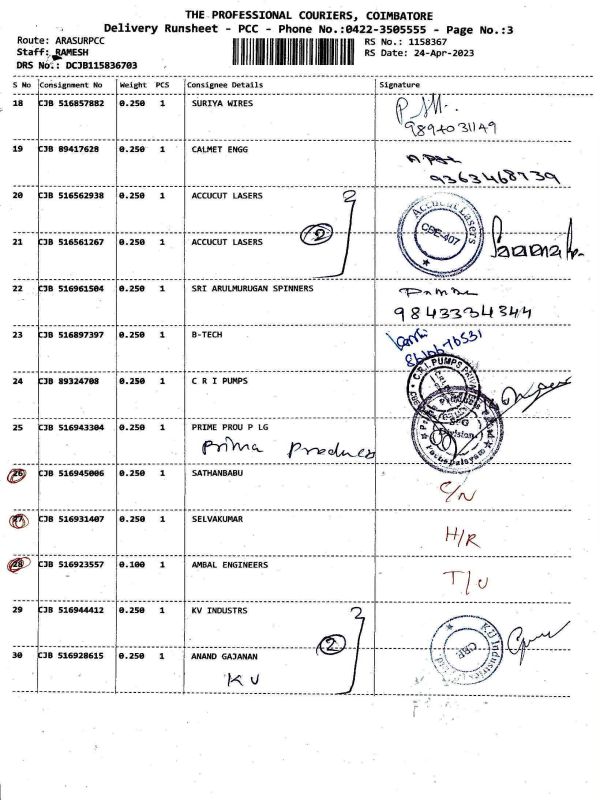 THE PROFESSIONAL COURIERS, COIMBATORE
Delivery Runsheet - PCC - Phone No.:0422-3505555 - Page No.:3
Route: ARASURPCC
RS No.: 1158367
Staff: RAMESH
RS Date: 24-Apr-2023
DRS No.: DCJB115836703
S No Consignment No Weight PCS Consignee Details Signature
18 CJB 516857882 0.250 1 SURIYA WIRES
9894031149
19 CJB 89417628 0.250 1 CALMET ENGG
9363468739
20 CJB 516562938 0.250 1 ACCUCUT LASERS
2
Accucut Lasers
CBE-407
21 CJB 516561267 0.250 1 ACCUCUT LASERS
22 CJB 516961504 0.250 1 SRI ARULMURUGAN SPINNERS
9843334344
23 CJB 516897397 0.250 1 B-TECH
24 CJB 89324708 0.250 1 C R I PUMPS
C.R.I. PUMPS
25 CJB 516943304 0.250 1 PRIME PROU P LG
Prima Produces
Division
26 CJB 516945006 0.250 1 SATHANBABU
C/N
27 CJB 516931407 0.250 1 SELVAKUMAR
H/R
28 CJB 516923557 0.100 1 AMBAL ENGINEERS
T/U
29 CJB 516944412 0.250 1 KV INDUSTRS
2
K.V Industries
CBE
30 CJB 516928615 0.250 1 ANAND GAJANAN
KV